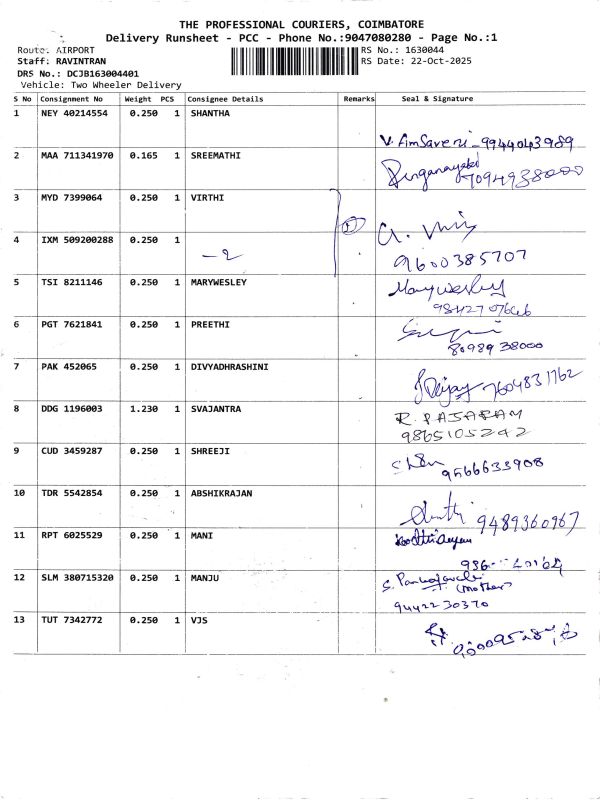 THE PROFESSIONAL COURIERS, COIMBATORE
Delivery Runsheet - PCC - Phone No.:9047080280 - Page No.:1
Route: AIRPORT
RS No.: 1630044
Staff: RAVINTRAN
RS Date: 22-Oct-2025
DRS No.: DCJB163004401
Vehicle: Two Wheeler Delivery
S No Consignment No Weight PCS Consignee Details Remarks Seal & Signature
1 NEY 40214554 0.250 1 SHANTHA
9944043989
2 MAA 711341970 0.165 1 SREEMATHI
7094938000
3 MYD 7399064 0.250 1 VIRTHI
4 IXM 509200288 0.250 1
-2
9600385707
5 TSI 8211146 0.250 1 MARYWESLEY Marywesley
6 PGT 7621841 0.250 1 PREETHI
8098938000
7 PAK 452065 0.250 1 DIVYADHRASHINI
7604831762
8 DDG 1196003 1.230 1 SVAJANTRA R. RAJARAM
9865105242
9 CUD 3459287 0.250 1 SHREEJI
9566633908
10 TDR 5542854 0.250 1 ABSHIKRAJAN
9489360967
11 RPT 6025529 0.250 1 MANI
12 SLM 380715320 0.250 1 MANJU
(Mother)
9442230370
13 TUT 7342772 0.250 1 VJS